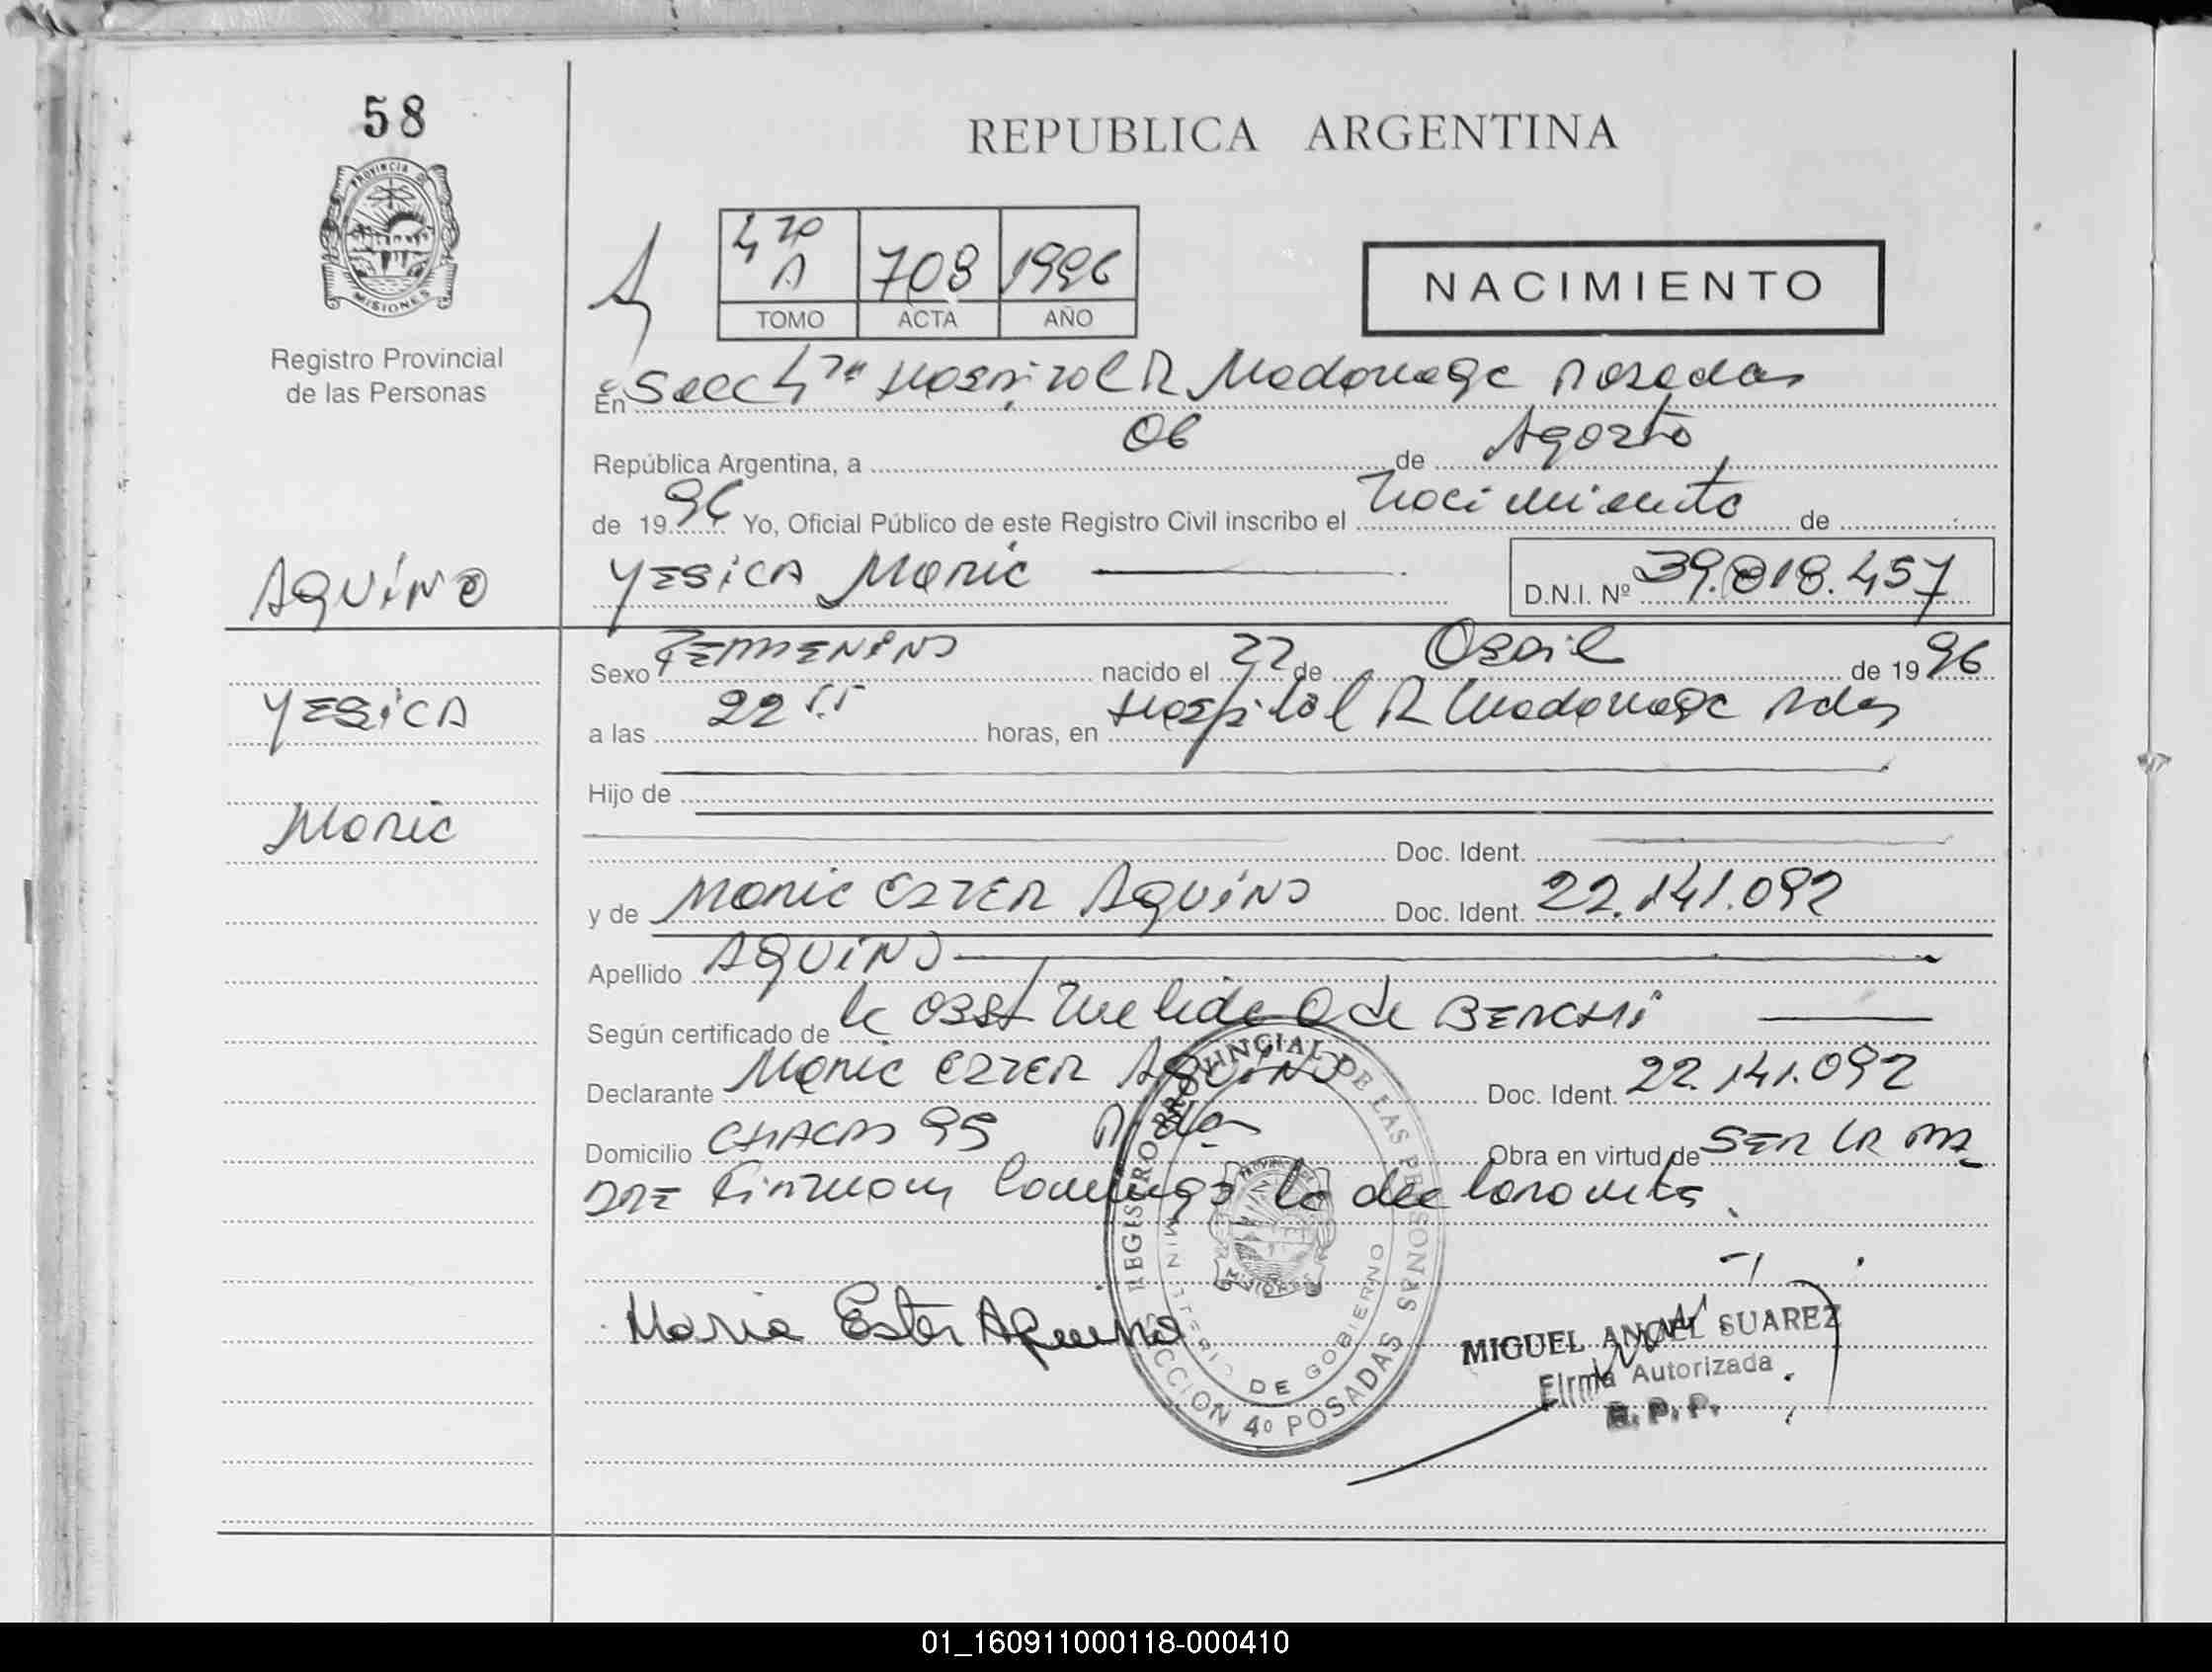 58
PROVINCIA DE
MISIONES
Registro Provincial
de las Personas
REPUBLICA ARGENTINA
4to A 708 1996
TOMO ACTA AÑO
NACIMIENTO
En Secc 4ta Hospital R Madariaga Posadas
República Argentina, a 06 de Agosto
de 1996 Yo, Oficial Público de este Registro Civil inscribo el Nacimiento de
AQUINO
YESICA Maria
D.N.I. Nº 39.818.457
Sexo FEMMENINO nacido el 22 de Abril de 1996
YESICA
a las 22 55 horas, en Hospital R Madariaga Pdas
Hijo de
Maria
Doc. Ident.
y de Maria ESTER AQUINO Doc. Ident. 22.141.092
Apellido AQUINO
Según certificado de la Obst Nelida O de BERCHI
Declarante Maria ESTER AQUINO Doc. Ident. 22.141.092
Domicilio CHACRA 95 Pdas Obra en virtud de SER LA MA
DRE Firman Conmigo la declarante
Maria Ester Aquino
REGISTRO PROVINCIAL DE LAS PERSONAS
MINISTERIO DE GOBIERNO
SECCION 4º POSADAS
MIGUEL ANGEL SUAREZ
Firma Autorizada
R. P. P.
01_160911000118-000410